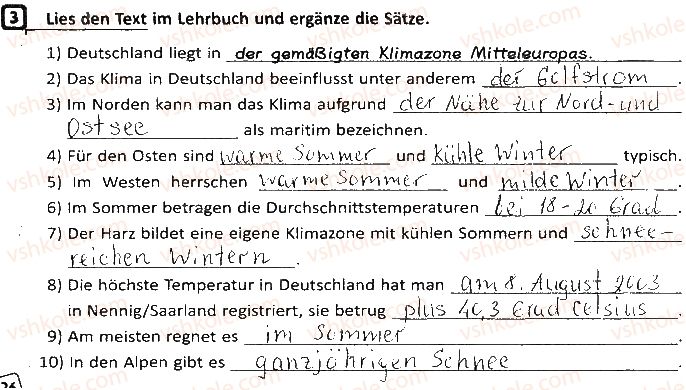 3 Lies den Text im Lehrbuch und ergänze die Sätze.
1) Deutschland liegt in der gemäßigten Klimazone Mitteleuropas.
2) Das Klima in Deutschland beeinflusst unter anderem der Golfstrom.
3) Im Norden kann man das Klima aufgrund der Nähe zur Nord- und
Ostsee als maritim bezeichnen.
4) Für den Osten sind warme Sommer und kühle Winter typisch.
5) Im Westen herrschen warme Sommer und milde Winter.
6) Im Sommer betragen die Durchschnittstemperaturen bei 18-20 Grad.
7) Der Harz bildet eine eigene Klimazone mit kühlen Sommern und schnee-
reichen Wintern.
8) Die höchste Temperatur in Deutschland hat man am 8. August 2003
in Nennig/Saarland registriert, sie betrug plus 40,3 Grad Celsius.
9) Am meisten regnet es im Sommer
10) In den Alpen gibt es ganzjährigen Schnee
26